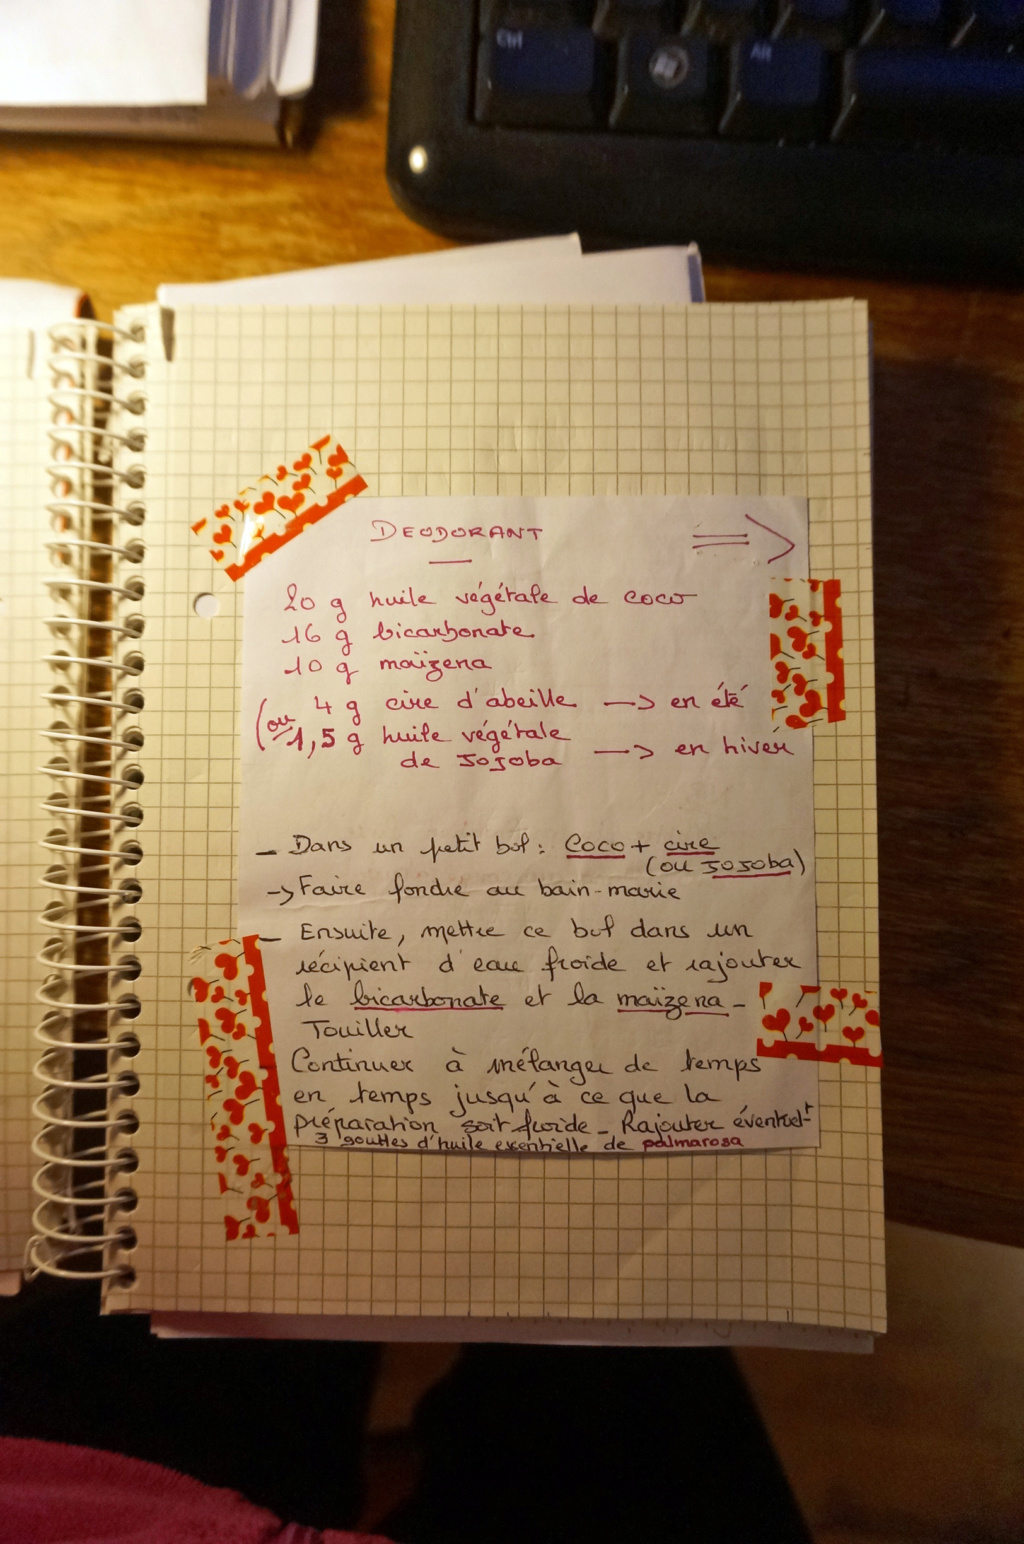 Ctrl
Alt
DEODORANT
=>
20 g huile végétale de coco
16 g bicarbonate
10 g maïzena
4 g cire d'abeille —> en été
(ou 1,5 g huile végétale
de JOJOBA —> en hiver
– Dans un petit bol : Coco + cire
(ou JOJOBA)
-> Faire fondre au bain-marie
– Ensuite, mettre ce bol dans un
récipient d'eau froide et rajouter
le bicarbonate et la maïzena –
Touiller
Continuer à mélanger de temps
en temps jusqu'à ce que la
préparation soit froide – Rajouter éventuelt
3 gouttes d'huile essentielle de palmarosa